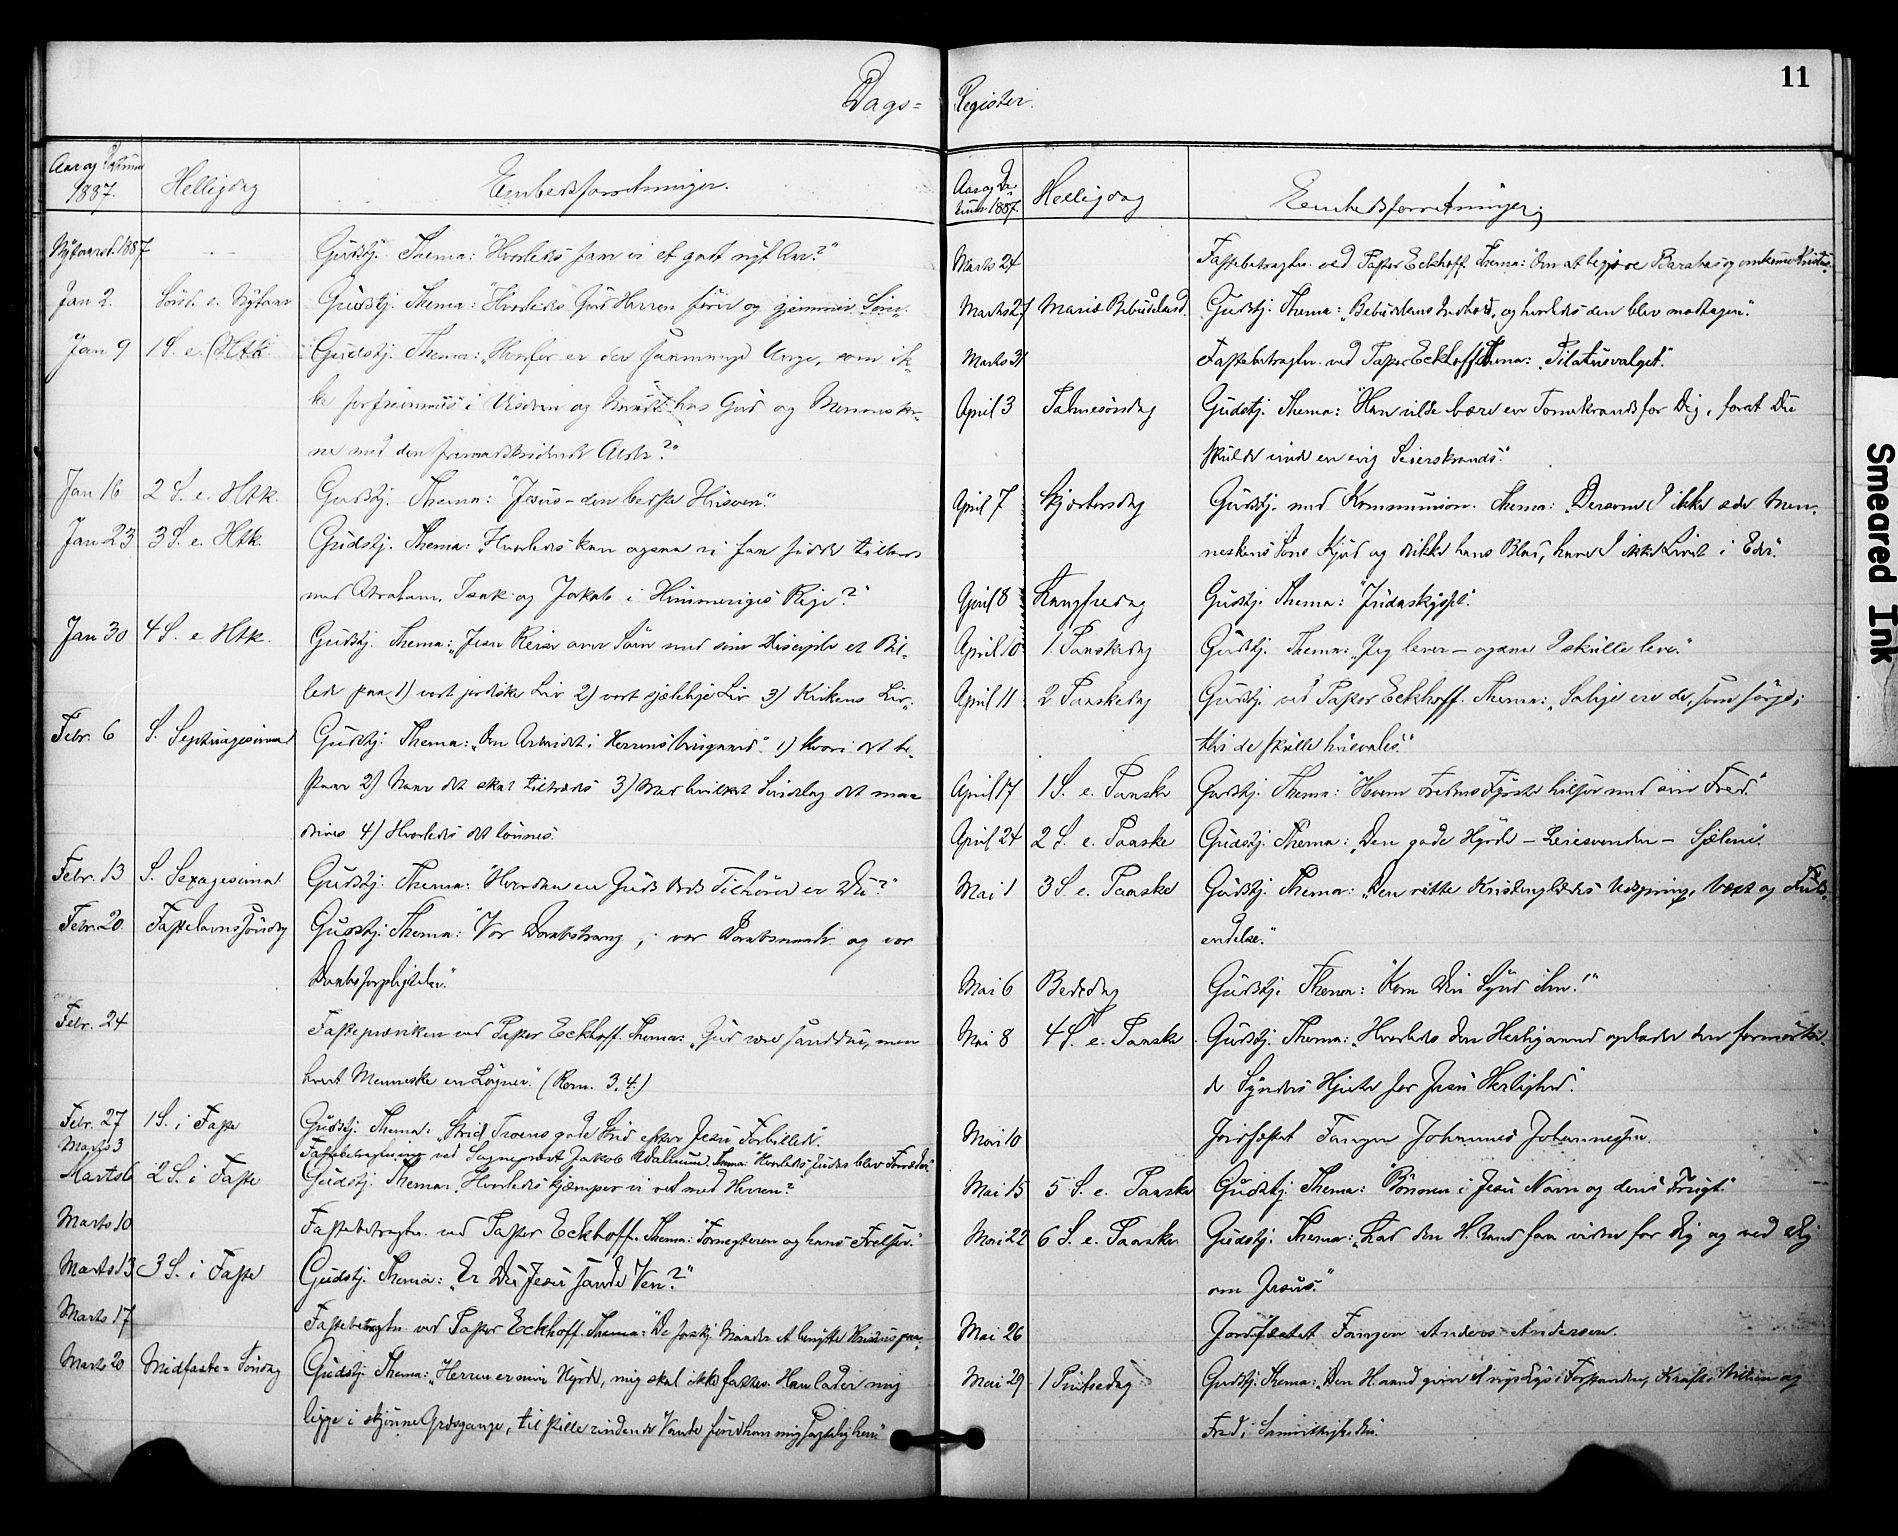 Dags- Register.
11
Aar og Datum 1887. Helligdag Embedsforretninger.
Nytaarsd. 1887 Gudstj. Thema: "Hvorledes faar vi et godt nyt Aar?"
Jan 2. Sønd. e. Nytaar Gudstj. Thema: "Hvorledes Gud Herren fører og gjemmer Sine."
Jan 9 1 S. e. Htk. Gudstj. Thema: "Hvorfor er der saa mange Unge, som ik-
ke forfremmes i Visdom og Naade hos Gud og Mennesker-
ne med den fremadskridende Alder?"
Jan 16 2 S. e. Htk. Gudstj. Thema: "Jesus – den bedste Husven."
Jan 23 3 S. e. Htk. Gudstj. Thema: "Hvorledes kan ogsaa vi faa sidde tilbords
med Abraham, Isak og Jakob i Himmeriges Rige?"
Jan 30 4 S. e Htk. Gudstj. Thema: "Jesu Reise over Søen med sine Disciple et Bil-
lede paa 1) vort jordiske Liv 2) vort sjælelige Liv 3) Kirkens Liv."
Febr. 6 S. Septuagesima Gudstj. Thema: "Om Arbeidet i Herrens Viingaard." 1) Hvori det be-
staar 2) Naar det skal tiltrædes 3) Med hvilket Sindelag det maa
drives 4) Hvorledes det lønnes.
Febr. 13 S. Sexagesima Gudstj. Thema: "Hvordan en Guds Ords Tilhører er Du?"
Febr. 20 Fastelavnssøndag Gudstj. Thema: "Vor Daabstrang, vor Daabsnaade og vor
Daabsforpligtelse."
Febr. 24 Fasteprædiken ved Pastor Eckhoff. Thema: "Gud være sanddru, men
hvert Menneske en Løgner." (Rom. 3,4.)
Febr. 27 1 S. i Faste Gudstj. Thema: "Strid Troens gode Strid efter Jesu Forbillede".
Marts 3 ved Sogneprest Jakob Walnum. Thema: "Hvorledes Judas blev Forræder"
Marts 6 2 S. i Faste Gudstj. Thema: "Hvorledes kjæmper vi ret med Herren?"
Marts 10 Fastebetragtn. ved Pastor Eckhoff. Thema: "Fornegteren og hans Frelser."
Marts 13 3 S. i Faste Gudstj. Thema: "Er Du Jesu sande Ven?"
Marts 17 Fastebetragtn. ved Pastor Eckhoff. Thema: "De forskj. Maader at benytte Kristus paa."
Marts 20 Midfaste-Søndag Gudstj. Thema: "Herren er min Hyrde, mig skal ikke fattes. Han lader mig
ligge i skjønne Græsgange, til stille rindende Vande fører han mig sagtelig hen."
Aar og Datum 1887. Helligdag Embedsforretninger.
Marts 24 Fastebetragtn. ved Pastor Eckhoff. Thema: "Om at begjære Barabas og omkomme Kristus."
Marts 27 Mariæ Bebudelsesd. Gudstj. Thema: "Bebudelsens Indhold, og hvorledes den blev modtagen."
Marts 31 Fastebetragtn. ved Pastor Eckhoff. Thema: "Pilatusvalget."
April 3 Palmesøndag Gudstj. Thema: "Han vilde bære en Tornekrands for Dig, forat Du
skulde vinde en evig Seierskrands."
April 7 Skjærtorsdag Gudstj. med Kommunion. Thema: "Dersom I ikke æde Men-
neskens Søns Kjød og drikke hans Blod, have I ikke Livet i Eder."
April 8 Langfredag Gudstj. Thema: "Judaskysset."
April 10 1. Paaskedag Gudstj. Thema: "Jeg lever – ogsaa I skulle leve."
April 11 2 Paaskedag Gudstj. ved Pastor Eckhoff. Thema: "Salige ere de, som sørge;
thi de skulle husvales."
April 17 1 S. e. Paaske Gudstj. Thema: "Hvem Fredens Fyrste hilser med sin Fred."
April 24 2 S. e. Paaske Gudstj. Thema: "Den gode Hyrde – Leiesvenden – Sjælene."
Mai 1 3 S e. Paaske Gudstj. Thema: "Den rette Kristenglædes Udspring, Vext og Fuld-
endelse."
Mai 6 Bededag Gudstj. Thema: "Kom Din Synd ihu!"
Mai 8 4 S. e. Paaske Gudstj. Thema: "Hvorledes den Hellig aand oplader den formørke-
de Synders Hjerte for Jesu Herlighed."
Mai 10 Jordfæstet Fangen Johannes Johannessen.
Mai 15 5 S. e. Paaske Gudstj. Thema: "Bønnen i Jesu Navn og dens Frugt."
Mai 22 6 S. e. Paaske Gudstj. Thema: "Lad den H. Aand faa vidne for Dig og ved Dig
om Jesus."
Mai 26 Jordfæstet Fangen Anders Andersen.
Mai 29 1 Pintsedag Gudstj. Thema: "Den H. aand giver et nyt Lys i Forstanden, Kraft i Villien og
Fred i Samvittigheden.
Smeared Ink